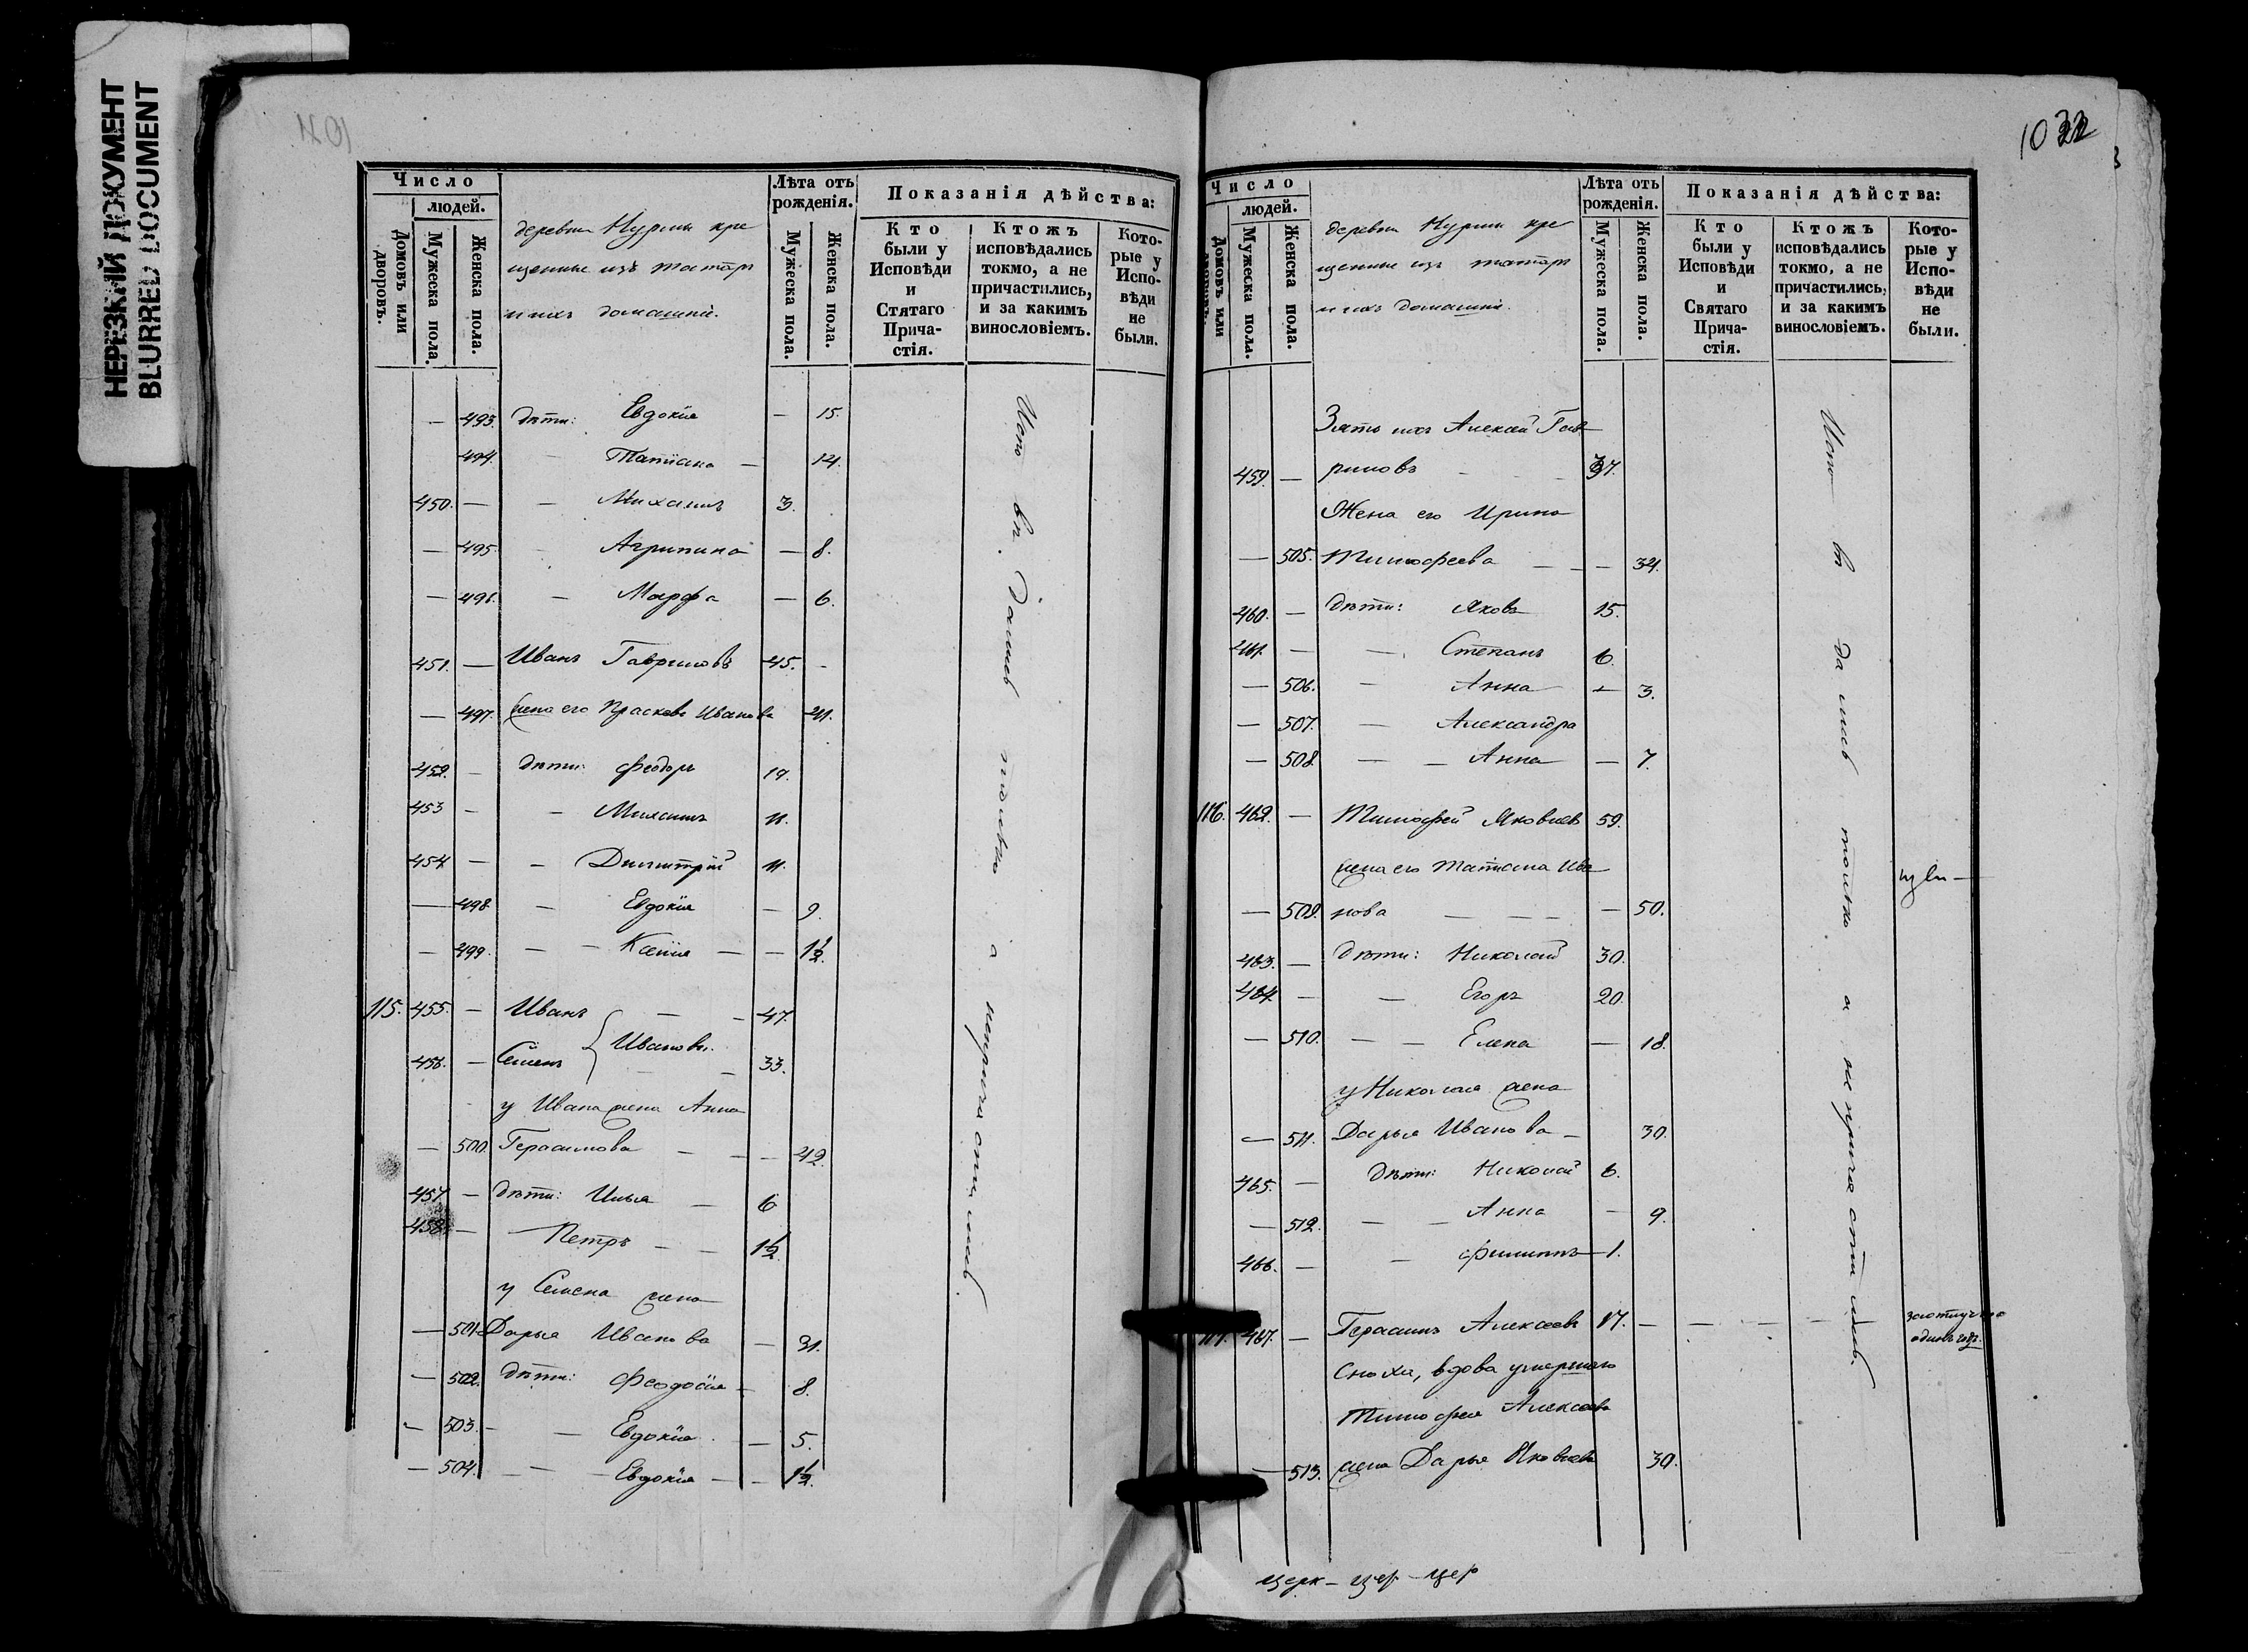 НЕРЕЗКИЙ ДОКУМЕНТ
BLURRED DOCUMENT
Число
людей.
Домовъ или дворовъ.
Мужеска пола.
Женска пола.
деревни Нурмы кре
щенные изъ татаръ
и ихъ домашніе.
Лѣта отъ рожденія.
Мужеска пола.
Женска пола.
Показанія дѣйства:
Кто были у Исповѣди и Стятаго Прича-стія.
Ктожъ исповѣдались токмо, а не причастились, и за какимъ винословіемъ.
Кото-рые у Испо-вѣди не были.
— 493. дѣти: Евдокія — 15.
494. — Татіана — 14.
450. — — Михаилъ 3.
— 495. — Агрипина — 8.
— 496. — Марфа — 6.
451. — Иванъ Гавриловъ 45. -
— 497. жена его Прасковья Иванова 41.
452. — дѣти: Феодоръ 19.
453 — — Михаилъ 11.
454 — — Димитрій 11.
— 498. — Евдокія — 9.
— 499. — — Ксенія — — 1½.
115. 455. — Иванъ — — 47.
Ивановы.
456. — Семенъ — — 33.
у Ивана жена Анна
— 500. Герасимова — — — 42.
457 — дѣти: Илья — 6
458. — — Петръ — — 1½.
у Семена жена
— 501. Дарья Иванова — 31.
— 502. дѣти: Феодосія — 8.
— 503. — — Евдокія — 5.
— 504. — — — Евдокія — — 1½.
только а непричастились
1022
Число
людей.
Домовъ или дворовъ.
Мужеска пола.
Женска пола.
деревни Нурмы кре
щенные изъ татаръ
и ихъ домашніе.
Лѣта отъ рожденія.
Мужеска пола.
Женска пола.
Показанія дѣйства:
Кто были у Исповѣди и Святаго Прича-стія.
Ктожъ исповѣдались токмо, а не причастились, и за какимъ винословіемъ.
Кото-рые у Испо-вѣди не были.
Зять ихъ Алексѣй Гав
459. — риловъ — — 37.
Жена его Ирина
— 505. Тимофеева — — — 34.
460. — дѣти: Яковъ 15.
461. — — Степанъ 6.
— 506. — Анна — 3.
— 507. — Александра
— 508. — — Анна — 7.
116. 462. — Тимофей Яковлевъ 59.
жена его Татіана Ива
— 509. нова — — — — 50.
463. — дѣти: Николай 30.
464. — — Егоръ 20.
— 510. — — Елена — 18.
у Николая жена
— 511. Дарья Иванова — 30.
465. — дѣти: Николай 6.
— 512. — — Анна — 9.
466. — — Филиппъ — 1.
117. 467. — Герасимъ Алексеевъ 17. — — — — —
Сноха, вдова умершаго
Тимофея Алексеева
— 513. жена Дарья Яковлева 30.
только а не причастились.
церк — цер — цер